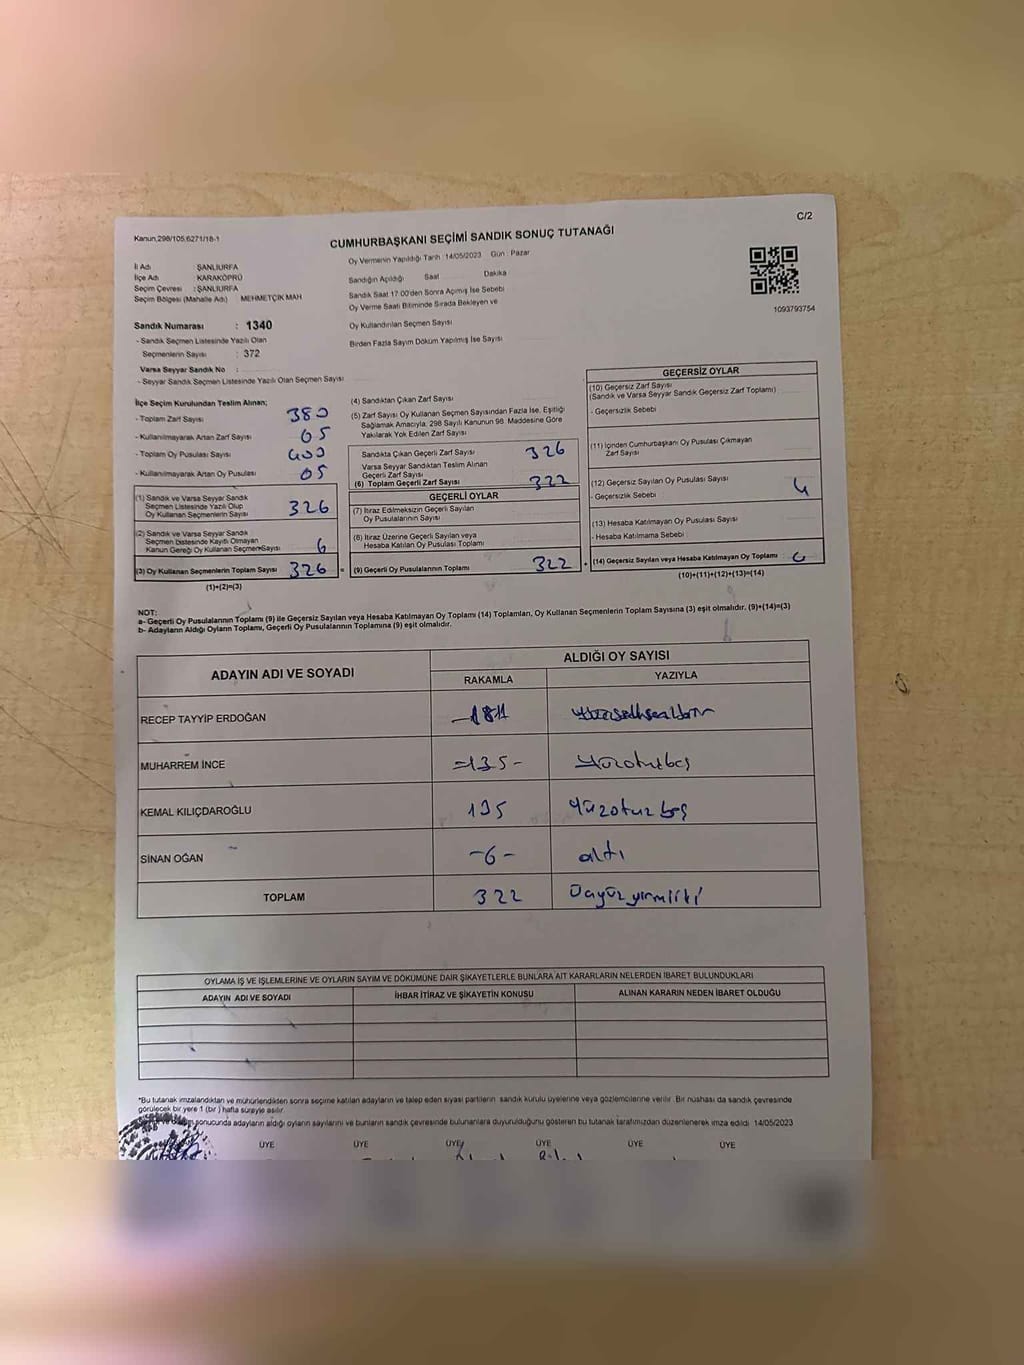 C/2
Kanun,298/105,6271/18-1
CUMHURBAŞKANI SEÇİMİ SANDIK SONUÇ TUTANAĞI
İl Adı ŞANLIURFA
İlçe Adı KARAKÖPRÜ
Seçim Çevresi : ŞANLIURFA
Seçim Bölgesi (Mahalle Adı) MEHMETÇİK MAH
Sandık Numarası : 1340
- Sandık Seçmen Listesinde Yazılı Olan
Seçmenlerin Sayısı : 372
Varsa Seyyar Sandık No :
- Seyyar Sandık Seçmen Listesinde Yazılı Olan Seçmen Sayısı
Oy Vermenin Yapıldığı Tarih : 14/05/2023 Gün : Pazar
Sandığın Açıldığı Saat Dakika
Sandık Saat 17:00'den Sonra Açımış İse Sebebi
Oy Verme Saati Bitiminde Sırada Bekleyen ve
Oy Kullandırılan Seçmen Sayısı
Birden Fazla Sayım Döküm Yapılmış İse Sayısı
1093793754
İlçe Seçim Kurulundan Teslim Alınan;
- Toplam Zarf Sayısı 380
- Kullanılmayarak Artan Zarf Sayısı 65
- Toplam Oy Pusulası Sayısı 400
- Kullanılmayarak Artan Oy Pusulası 05
(1) Sandık ve Varsa Seyyar Sandık
Seçmen Listesinde Yazılı Olup
Oy Kullanan Seçmenlerin Sayısı 326
(2) Sandık ve Varsa Seyyar Sandık
Seçmen Listesinde Kayıtlı Olmayan
Kanun Gereği Oy Kullanan Seçmen Sayısı 6
(3) Oy Kullanan Seçmenlerin Toplam Sayısı 326 =
(1)+(2)=(3)
(4) Sandıktan Çıkan Zarf Sayısı
(5) Zarf Sayısı Oy Kullanan Seçmen Sayısından Fazla İse, Eşitliği
Sağlamak Amacıyla, 298 Sayılı Kanunun 98. Maddesine Göre
Yakılarak Yok Edilen Zarf Sayısı
Sandıkta Çıkan Geçerli Zarf Sayısı 326
Varsa Seyyar Sandıktan Teslim Alınan
Geçerli Zarf Sayısı
(6) Toplam Geçerli Zarf Sayısı 322
GEÇERLİ OYLAR
(7) İtiraz Edilmeksizin Geçerli Sayılan
Oy Pusulalarının Sayısı
(8) İtiraz Üzerine Geçerli Sayılan veya
Hesaba Katılan Oy Pusulası Toplamı
(9) Geçerli Oy Pusulalarının Toplamı 322 +
GEÇERSİZ OYLAR
(10) Geçersiz Zarf Sayısı
(Sandık ve Varsa Seyyar Sandık Geçersiz Zarf Toplamı)
- Geçersizlik Sebebi
(11) İçinden Cumhurbaşkanı Oy Pusulası Çıkmayan
Zarf Sayısı
(12) Geçersiz Sayılan Oy Pusulası Sayısı 4
- Geçersizlik Sebebi
(13) Hesaba Katılmayan Oy Pusulası Sayısı
- Hesaba Katılmama Sebebi
(14) Geçersiz Sayılan veya Hesaba Katılmayan Oy Toplamı
(10)+(11)+(12)+(13)=(14)
NOT:
a- Geçerli Oy Pusulalarının Toplamı (9) ile Geçersiz Sayılan veya Hesaba Katılmayan Oy Toplamı (14) Toplamları, Oy Kullanan Seçmenlerin Toplam Sayısına (3) eşit olmalıdır. (9)+(14)=(3)
b- Adayların Aldığı Oyların Toplamı, Geçerli Oy Pusulalarının Toplamına (9) eşit olmalıdır.
ADAYIN ADI VE SOYADI ALDIĞI OY SAYISI
RAKAMLA YAZIYLA
RECEP TAYYİP ERDOĞAN
MUHARREM İNCE =135- Yüzotuzbeş
KEMAL KILIÇDAROĞLU 135 Yüzotuz beş
SİNAN OĞAN -6- altı
TOPLAM 322 Üçyüz yirmi iki
OYLAMA İŞ VE İŞLEMLERİNE VE OYLARIN SAYIM VE DÖKÜMÜNE DAİR ŞİKAYETLERLE BUNLARA AİT KARARLARIN NELERDEN İBARET BULUNDUKLARI
ADAYIN ADI VE SOYADI İHBAR İTİRAZ VE ŞİKAYETİN KONUSU ALINAN KARARIN NEDEN İBARET OLDUĞU
*Bu tutanak imzalandıktan ve mühürlendikten sonra seçime katılan adayların ve talep eden siyasi partilerin sandık kurulu üyelerine veya gözlemcilerine verilir. Bir nüshası da sandık çevresinde
görülecek bir yere 1 (bir) hafta süreyle asılır.
sonucunda adayların aldığı oyların sayılarını ve bunların sandık çevresinde bulunanlara duyurulduğunu gösteren bu tutanak tarafımızdan düzenlenerek imza edildi. 14/05/2023
ÜYE ÜYE ÜYE ÜYE ÜYE ÜYE